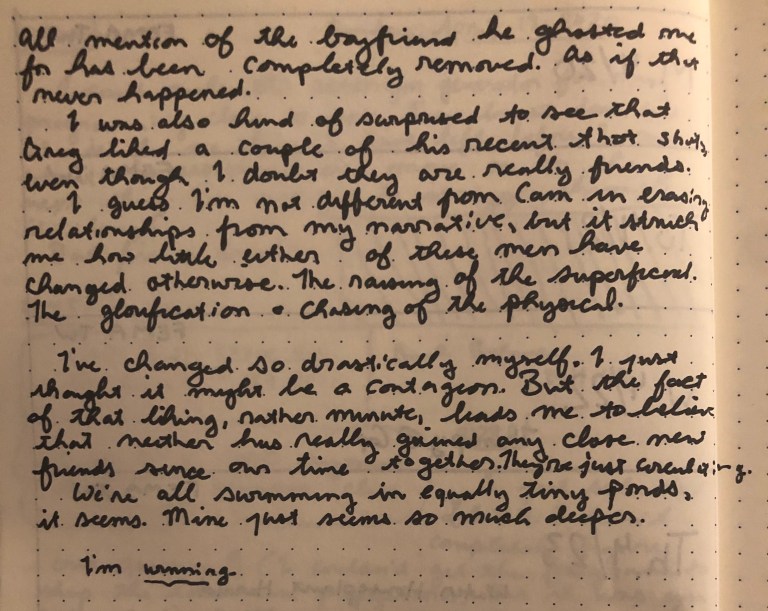 All mention of the boyfriend he ghosted me
for has been completely removed. As if that
never happened.
I was also kind of surprised to see that
Greg liked a couple of his recent thot shots,
even though I doubt they are really friends.
I guess I'm not different from Cam in erasing
relationships from my narrative, but it struck
me how little either of these men have
changed otherwise. The raising of the superficial.
The glorification & chasing of the physical.
I've changed so drastically myself. I just
thought it might be a contagion. But the fact
of that liking, rather minute, leads me to believe
that neither has really gained any close new
friends since our time together. They're just circulating.
We're all swimming in equally tiny ponds,
it seems. Mine just seems so much deeper.
I'm winning.